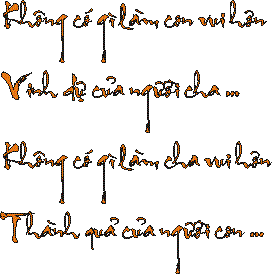 Không có gì làm con vui hơn
Vinh dự của người cha ...
Không có gì làm cha vui hơn
Thành quả của người con ...